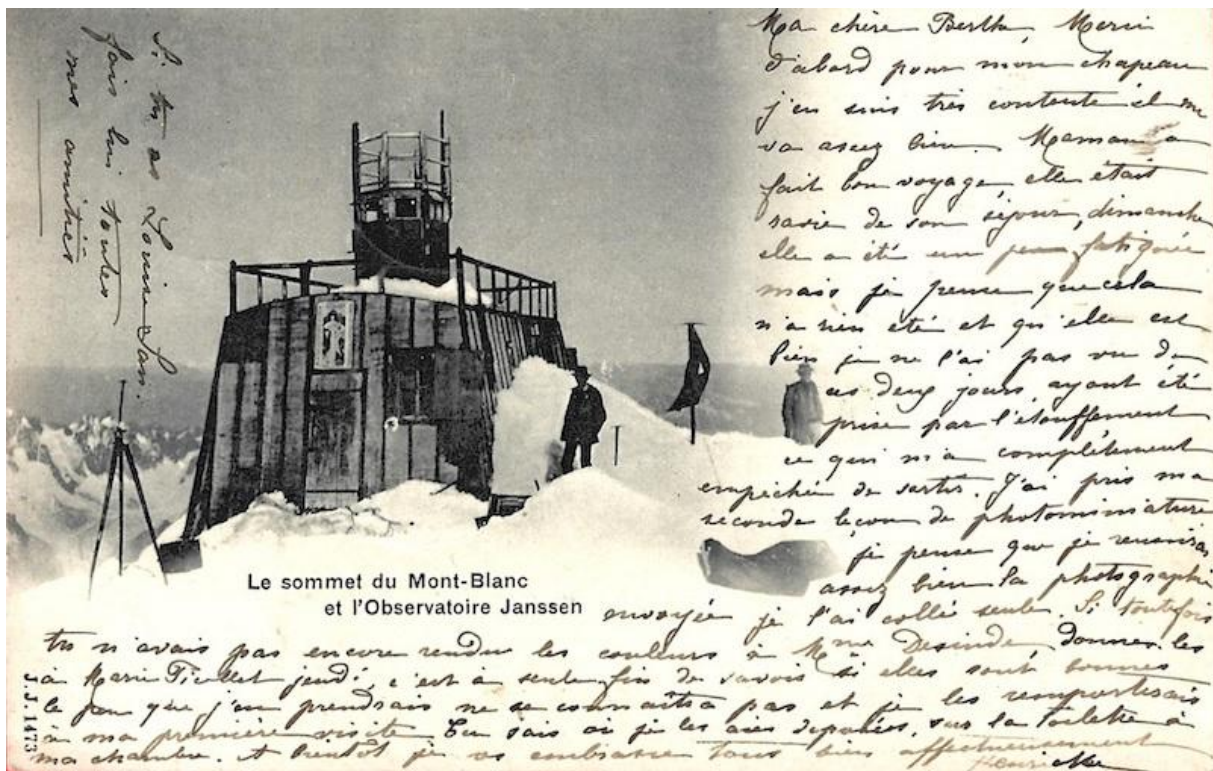 Ma chère Berthe, Merci
d'abord pour mon chapeau
j'en suis très contente il me
va assez bien. Maman a
fait bon voyage, elle était
ravie de son séjour, dimanche
elle a été un peu fatiguée
mais je pense que cela
n'a rien été et qu'elle est
bien je ne l'ai pas vue de
ces deux jours, ayant été
prise par l'étouffement
ce qui m'a complètement
empêchée de sortir. J'ai pris ma
seconde leçon de photominiature
je pense que je réussirai
assez bien la photographie
envoyée je l'ai collée seule. Si toutefois
tu n'avais pas encore rendu les couleurs à Mme donnes les
à Marie jeudi, c'est à seule fin de savoir si elles sont bonnes
le peu que j'en prendrais ne se connaîtra pas et je les remporterais
à ma première visite. Tu sais où je les ai déposées, sur la toilette à
ma chambre. A bientôt je vs embrasse tous bien affectueusement
Si tu as Louise
fais lui toutes
mes amitiés
Le sommet du Mont-Blanc
et l'Observatoire Janssen
J.J. 1473